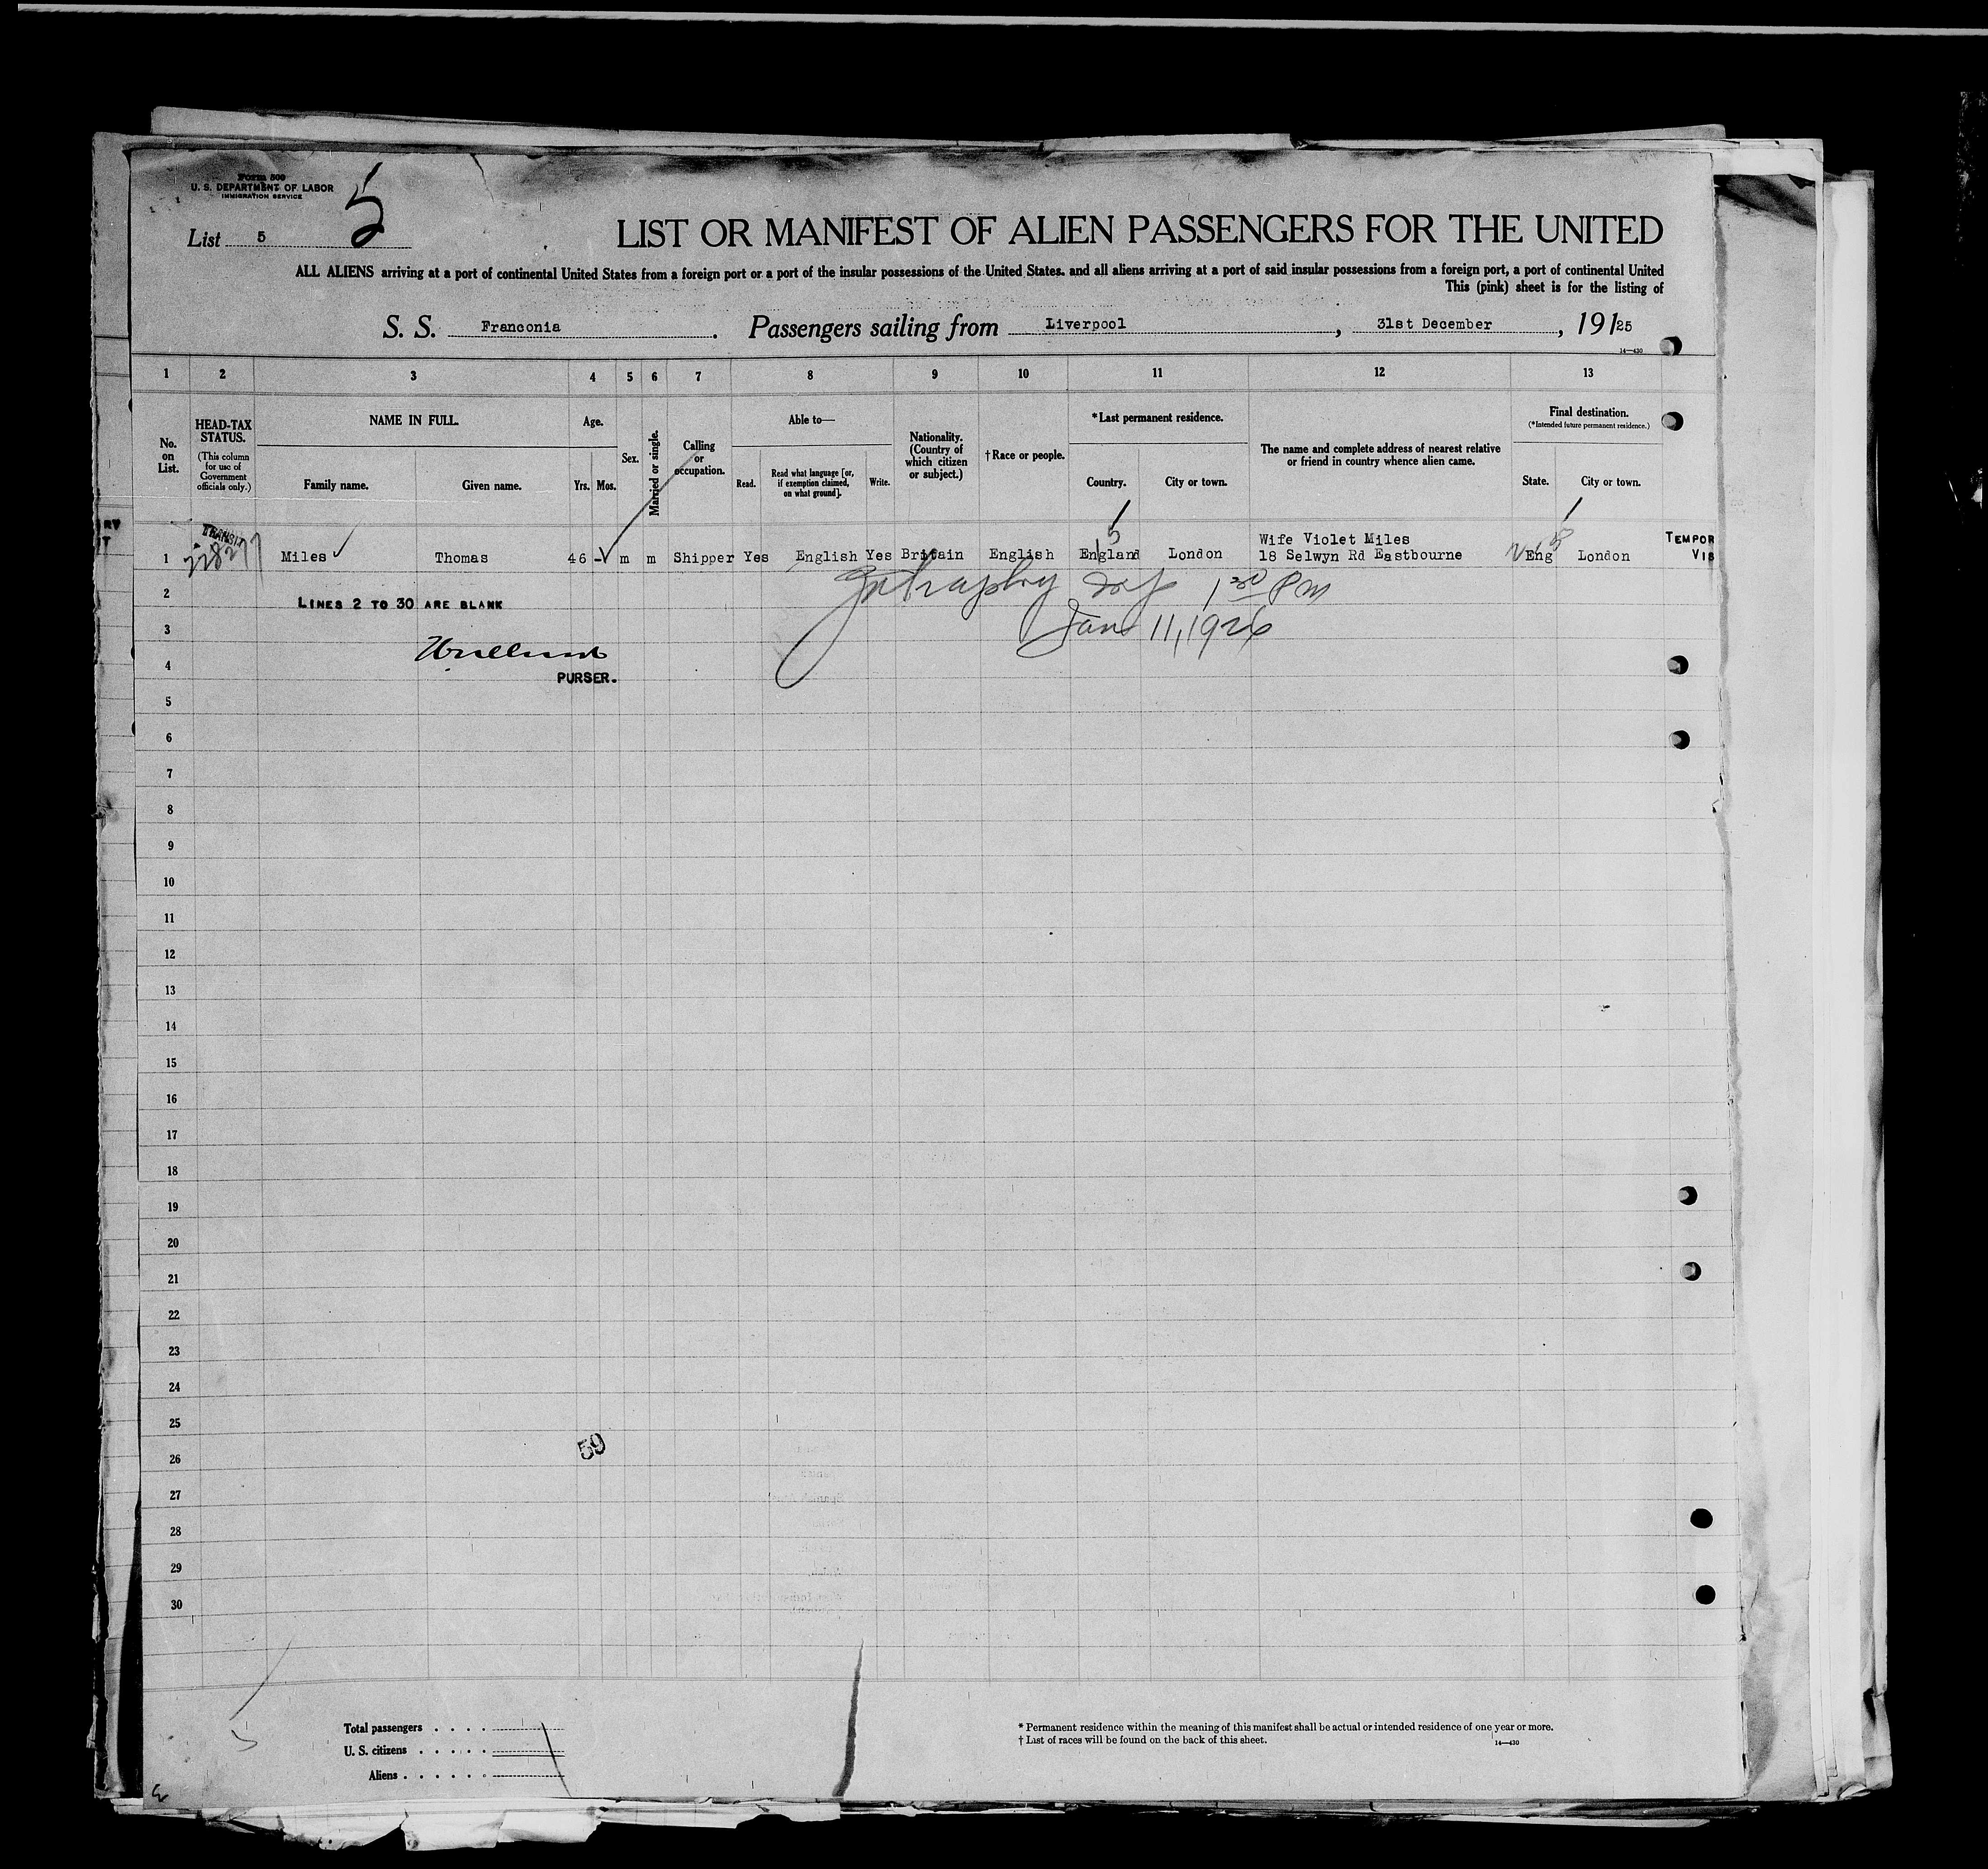 Form 500
U. S. DEPARTMENT OF LABOR
IMMIGRATION SERVICE
5
List 5
LIST OR MANIFEST OF ALIEN PASSENGERS FOR THE UNITED
ALL ALIENS arriving at a port of continental United States from a foreign port or a port of the insular possessions of the United States, and all aliens arriving at a port of said insular possessions from a foreign port, a port of continental United
This (pink) sheet is for the listing of
S. S. Franconia. Passengers sailing from Liverpool, 31st December, 19125
14—430
1 2 3 4 5 6 7 8 9 10 11 12 13
No. on List.
HEAD-TAX STATUS.
(This column for use of Government officials only.)
NAME IN FULL.
Family name. Given name.
Age.
Yrs. Mos.
Sex.
Married or single.
Calling or occupation.
Able to—
Read. Read what language [or, if exemption claimed, on what ground]. Write.
Nationality. (Country of which citizen or subject.)
†Race or people.
*Last permanent residence.
Country. City or town.
The name and complete address of nearest relative or friend in country whence alien came.
Final destination.
(*Intended future permanent residence.)
State. City or town.
TRANSIT
1 Miles Thomas 46 - m m Shipper Yes English Yes Britain English England London Wife Violet Miles
18 Selwyn Rd Eastbourne Eng London
5
5
TEMPOR
VIS
2 LINES 2 TO 30 ARE BLANK
1 30 PM
3 Jan 11, 1926
4 PURSER.
5
6
7
8
9
10
11
12
13
14
15
16
17
18
19
20
21
22
23
24
25
26 59
27
28
29
30
Total passengers . . . .
U. S. citizens . . . . .
Aliens . . . . . .
* Permanent residence within the meaning of this manifest shall be actual or intended residence of one year or more.
† List of races will be found on the back of this sheet.
14—430